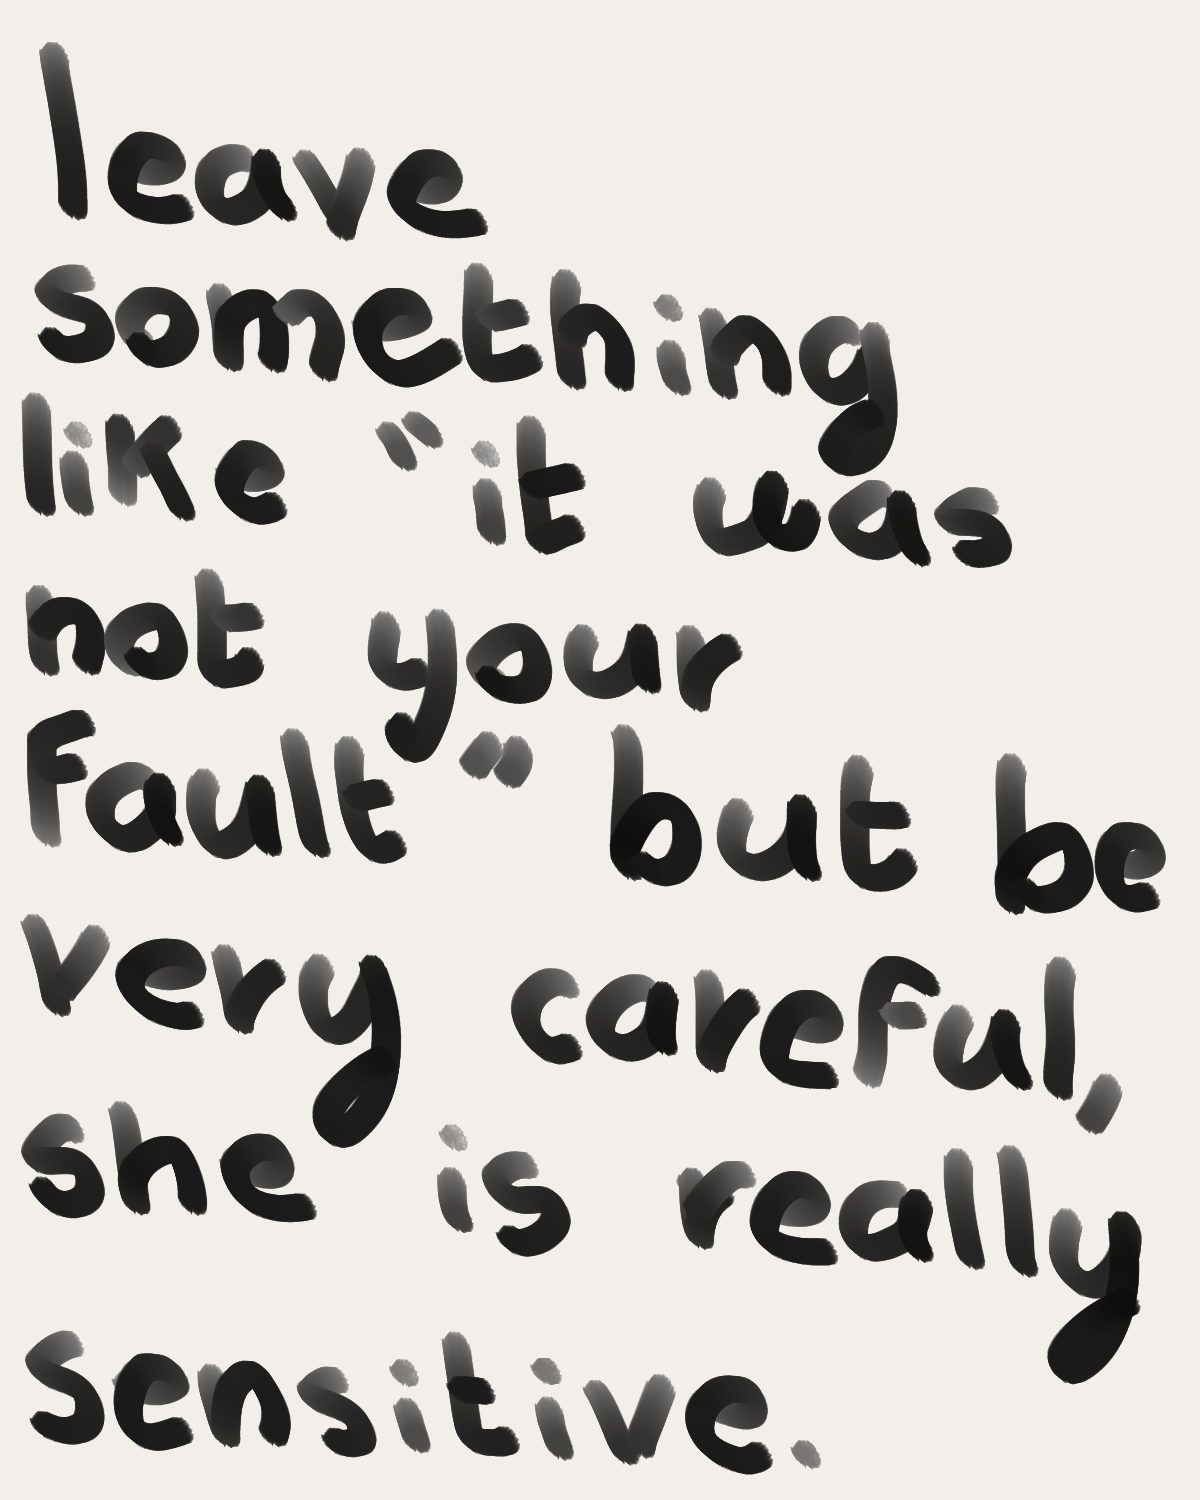 leave
something
like "it was
not your
fault" but be
very careful,
she is really
sensitive.